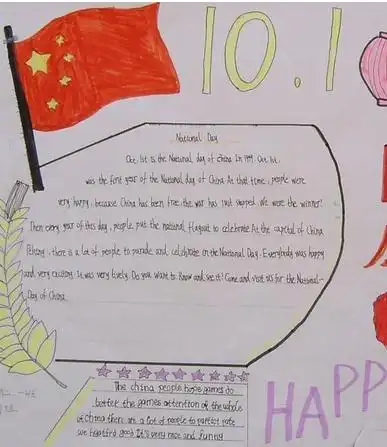 10.1
National Day
Oct. 1st is the National day of China. In 1949. Oct. 1st.
was the first year of the National day of China. At that time, people were
very happy, because China has been free. the war has just stoped. We were the winner!
Then every year of this day, people put the national flag out to celebrate At the capital of China
Peking, there is a lot of people to parade and celebrate on the National Day. Everybody was happy
and very exciting. It was very lively. Do you want to know and see it? Come and visit us for the National-
Day of China.
The china people hope games do
better the games attention of the whole
of china there are a lot of people to
we good It's very nice and funny
HAPP